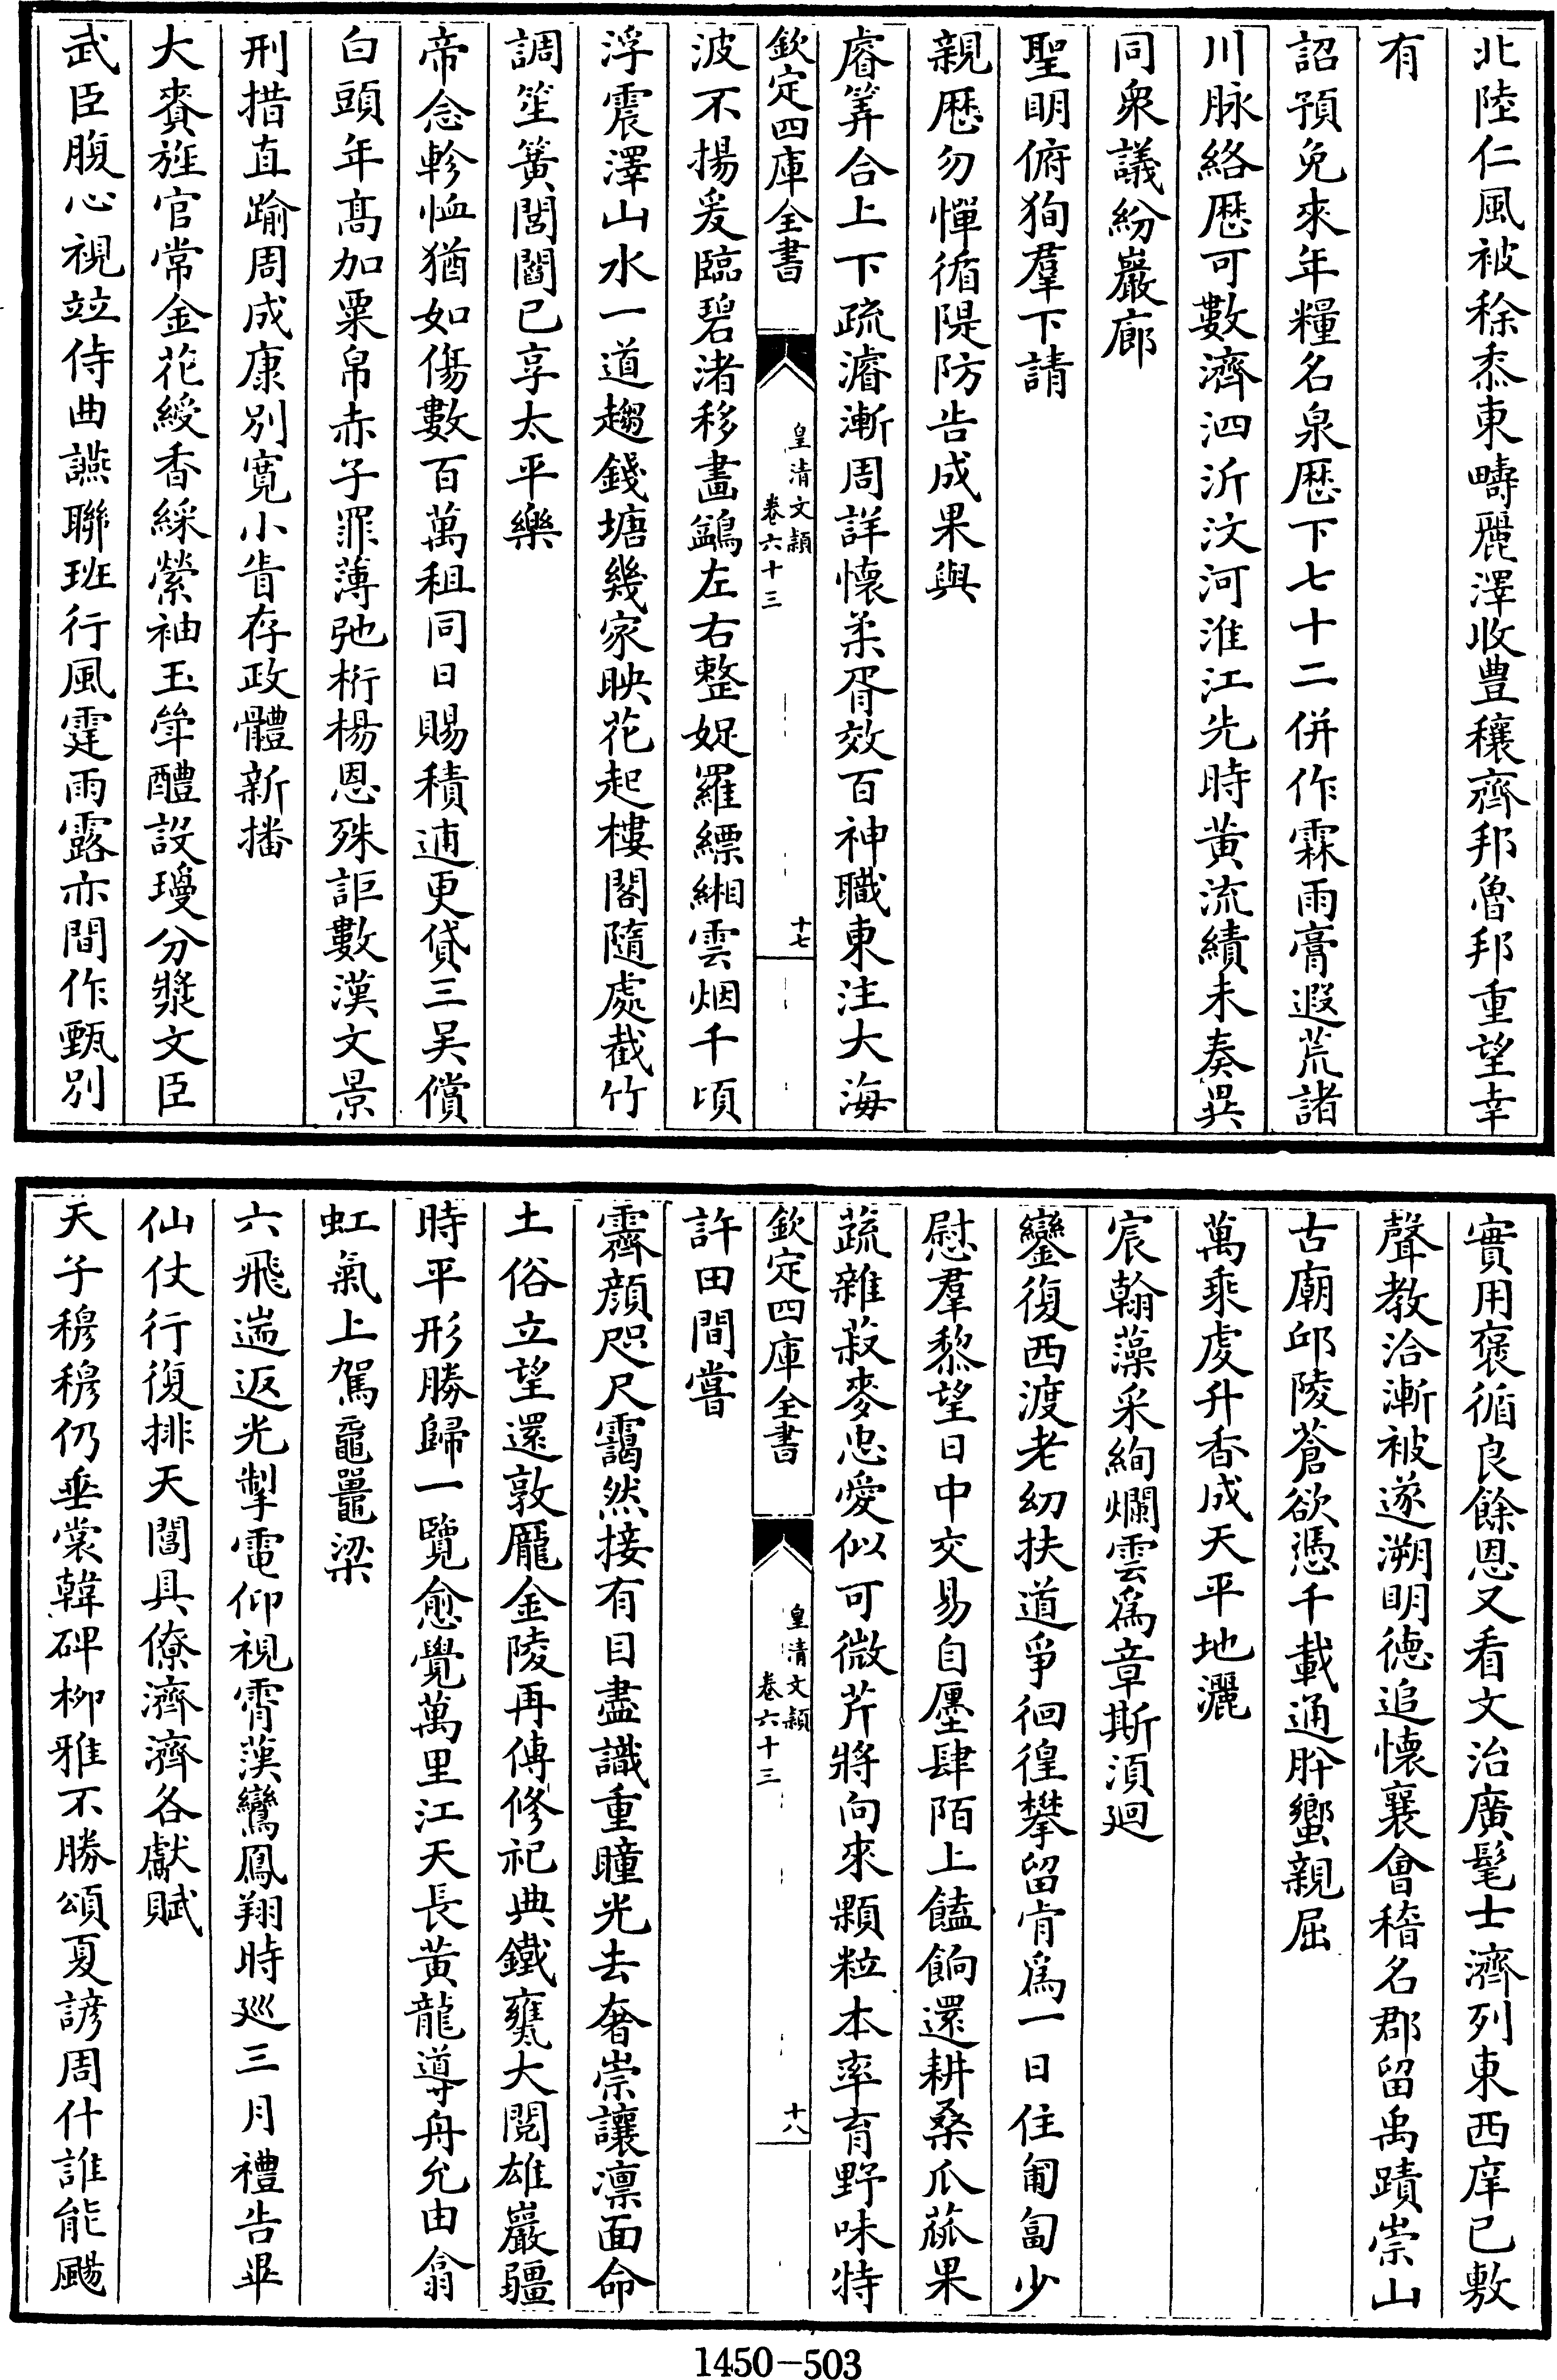 北陸仁風被稌黍東疇麗澤收豊穰齊邦魯邦重望幸
有
詔預免來年糧名泉歴下七十二併作霖雨膏遐荒諸
川脉絡歴可數濟泗沂汶河淮江先時黄流績未奏異
同衆議紛巖廊
聖明俯狥羣下請
親歴勿憚循隄防告成果與
睿筭合上下疏濬漸周詳懷柔胥效百神職東注大海
欽定四庫全書
皇清文穎
卷六十三
十七
波不揚爰臨碧渚移畫鷁左右整娖羅縹緗雲烟千頃
浮震澤山水一道趨錢塘幾家映花起樓閣隨處截竹
調笙簧閭閻已享太平樂
帝念軫恤猶如傷數百萬租同日賜積逋更貸三吴償
白頭年髙加粟帛赤子罪薄弛桁楊恩殊詎數漢文景
刑措直踰周成康别寛小眚存政體新播
大賚旌官常金花綬香綵縈袖玉斝醴設璦分漿文臣
武臣腹心視竝侍曲讌聯班行風霆雨露亦間作甄别
實用褒循良餘恩又看文治廣髦士濟列東西庠已敷
聲教洽漸被遂溯明徳追懷襄會稽名郡留禹蹟崇山
古廟邱陵蒼欲憑千載通肸蠁親屈
萬乘虔升香成天平地灑
宸翰藻采絢爛雲為章斯湏廻
鑾復西渡老幼扶道爭徊徨攀留肯為一日住匍匐少
慰羣黎望日中交易自廛肆陌上饁餉還耕桑瓜蓏果
蔬雜菽麥忠愛似可微芹將向來顆粒本率育野味特
欽定四庫全書
皇清文穎
卷六十三
十八
許田間嘗
霽顔咫尺靄然接有目盡識重瞳光去奢崇讓凛面命
土俗立望還敦龎金陵再傳修祀典鐵甕大閲雄巖疆
時平形勝歸一覽愈覺萬里江天長黄龍導舟允由翕
虹氣上駕黿鼉梁
六飛遄返光掣電仰視霄漢鸞鳳翔時廵三月禮告畢
仙仗行復排天閶具僚濟濟各獻賦
天子穆穆仍垂裳韓碑柳雅不勝頌夏諺周什誰能颺
1450-503